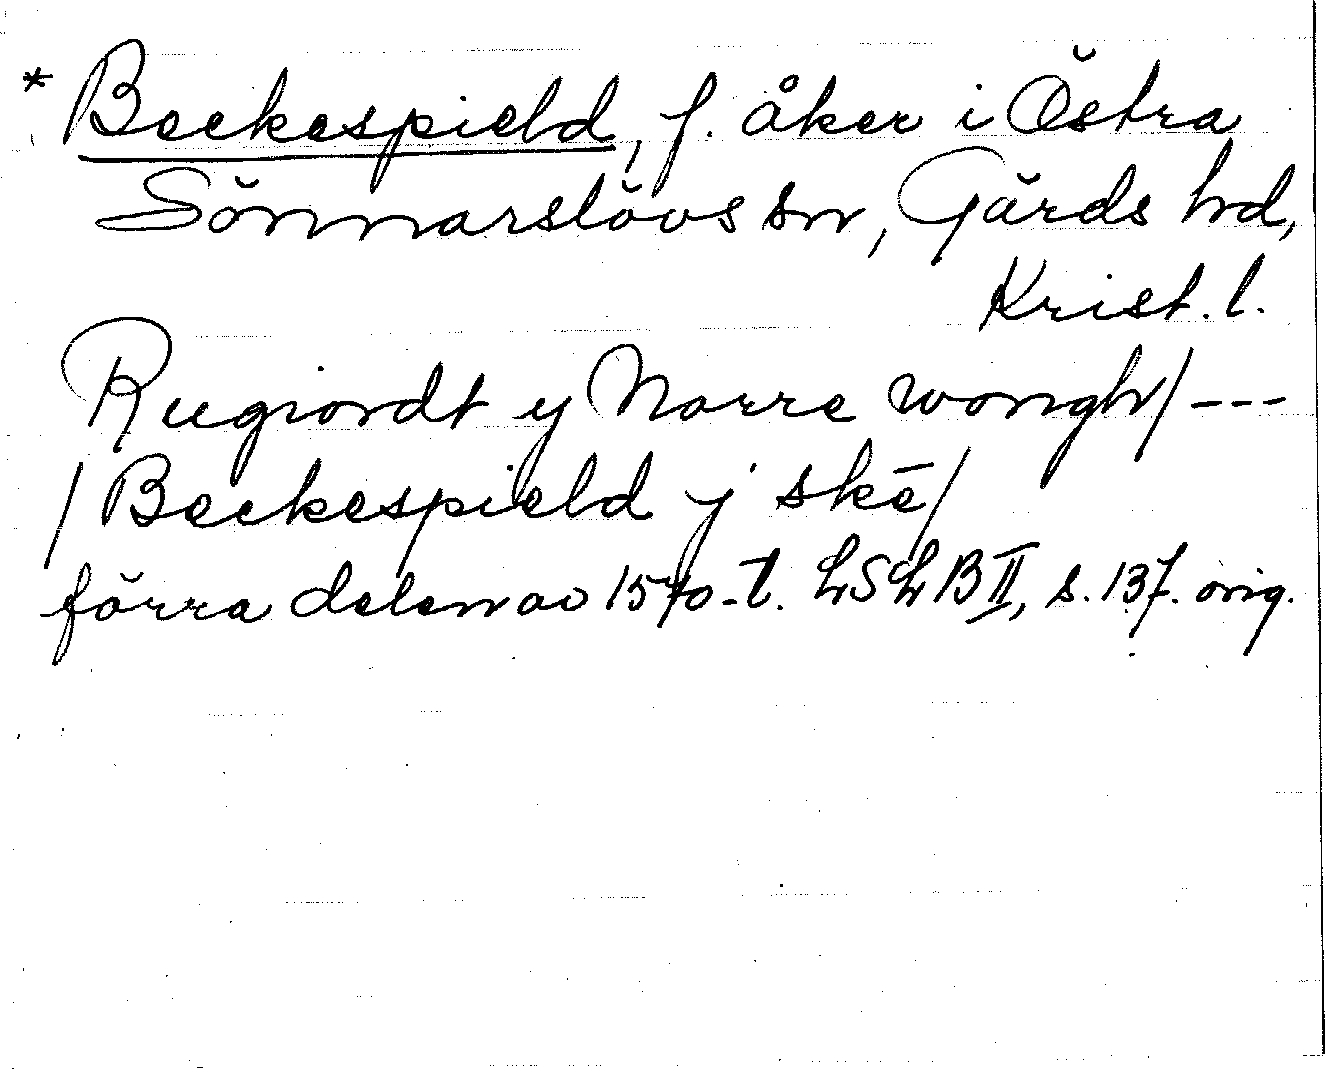 * Beckespield, f. åker i Östra
Sönnarslövs sn, Gärds hd,
Krist. l.
Rugiordt y Norre wongh/ ---
/ Beckespield y skē/
förra delen av 1570-t. LSLB II, s. 137. orig.